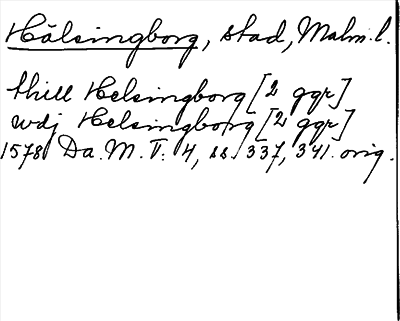 Hälsingborg, stad, Malm. l.
thill Helsingborg [2 ggr]
wdj Helsingborg [2 ggr]
1578 Da. M. T. 4, ss. 337, 341. orig.